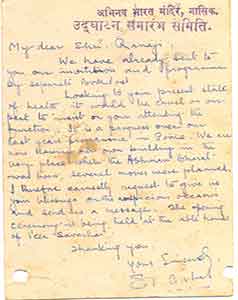 अभिनव भारत मंदिर, नासिक.
उद्घाटन समारंभ समिति.
My dear Shri.
We have already sent to
you our invitation and programme
by separate
Looking to your present state
of health it would be cruel on our
part to insist on your attending the
function. It is a progress over our
last year's function in Poona. We are
now having our own building in the
very place where the Abhinav Bharat
was born, several moves were planned.
I therefore earnestly request to give us
your blessings on the auspicious occasion
and send us a message. The opening
ceremony is being held at the able hands
of Veer Savarkar
Thanking you,
Yours Sincerely